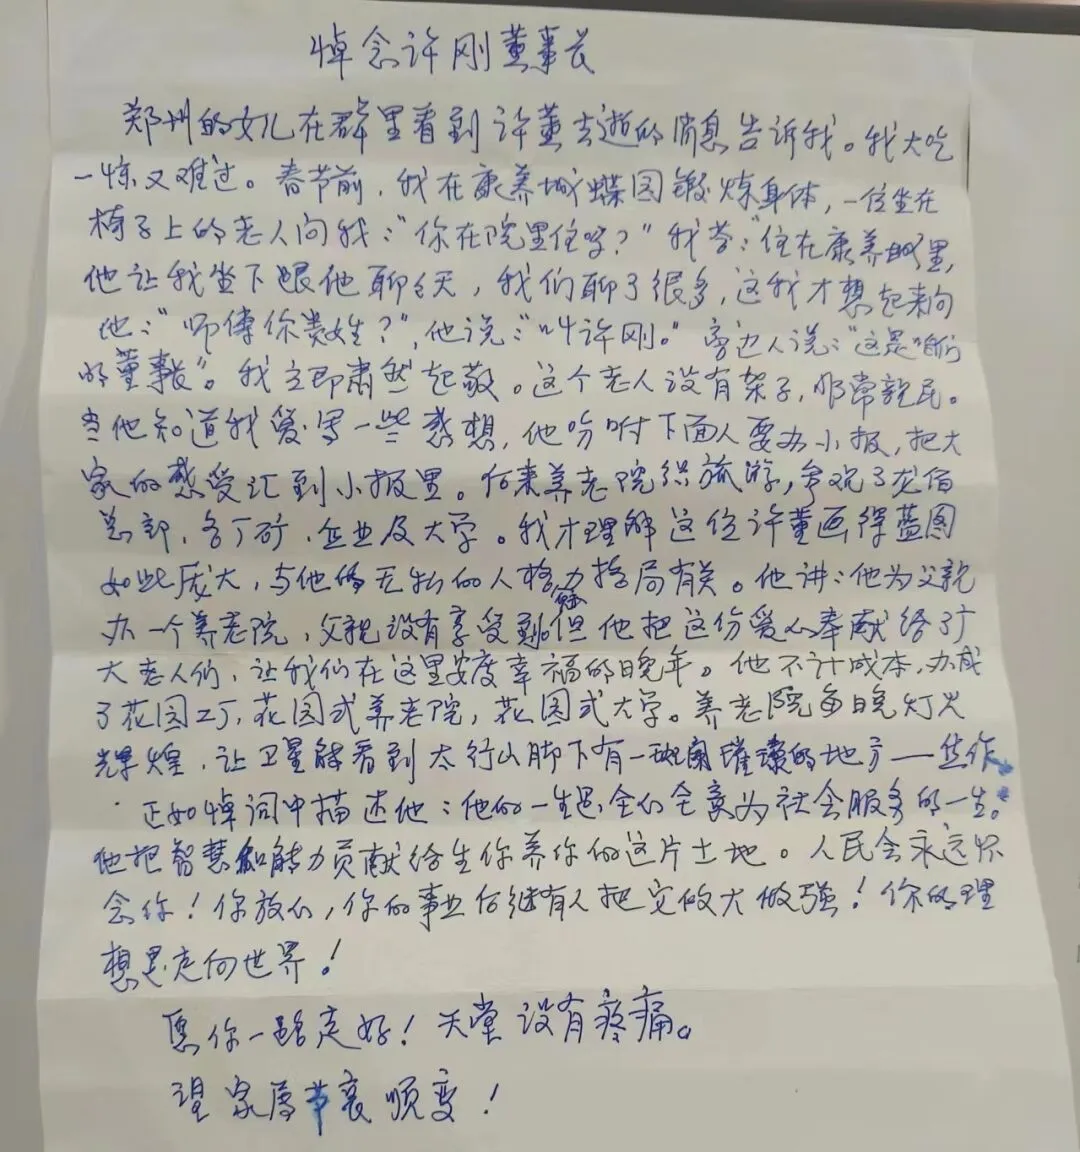 悼念许刚董事长
郑州的女儿在群里看到许董去逝的消息告诉我。我大吃
一惊又难过。春节前，我在康养城蝶园锻炼身体，一位坐在
椅子上的老人问我："你在院里住吗？"我答："住在康养城里，
他让我坐下跟他聊聊天，我们聊了很多，这我才想起来问
他："师傅你贵姓？"，他说："叫许刚。"旁边人说："这是咱们
的董事长"。我立即肃然起敬。这个老人没有架子，非常亲民。
当他知道我爱写一些感想，他吩咐下面人要办小报，把大
家的感受汇到小报里。后来养老院组织旅游，参观了龙佰
总部，各厂矿，企业及大学。我才理解这位许董画得蓝图
如此庞大，与他的无私的人格魅力格局有关。他讲：他为父亲
办一个养老院，父亲没有享受到。但他把这份爱心奉献给了广
大老人们，让我们在这里安度幸福的晚年。他不计成本，办成
了花园工厂，花园式养老院，花园式大学。养老院每晚灯火
辉煌，让卫星能看到太行山脚下有一斑阑璀璨的地方——焦作
正如悼词中描述他：他的一生是全心全意为社会服务的一生。
他把智慧和能力贡献给生你养你的这片土地。人民会永远怀
念你！你放心，你的事业后继有人把它做大做强！你的理
想是走向世界！
愿你一路走好！天堂没有疼痛。
望家属节哀顺变！